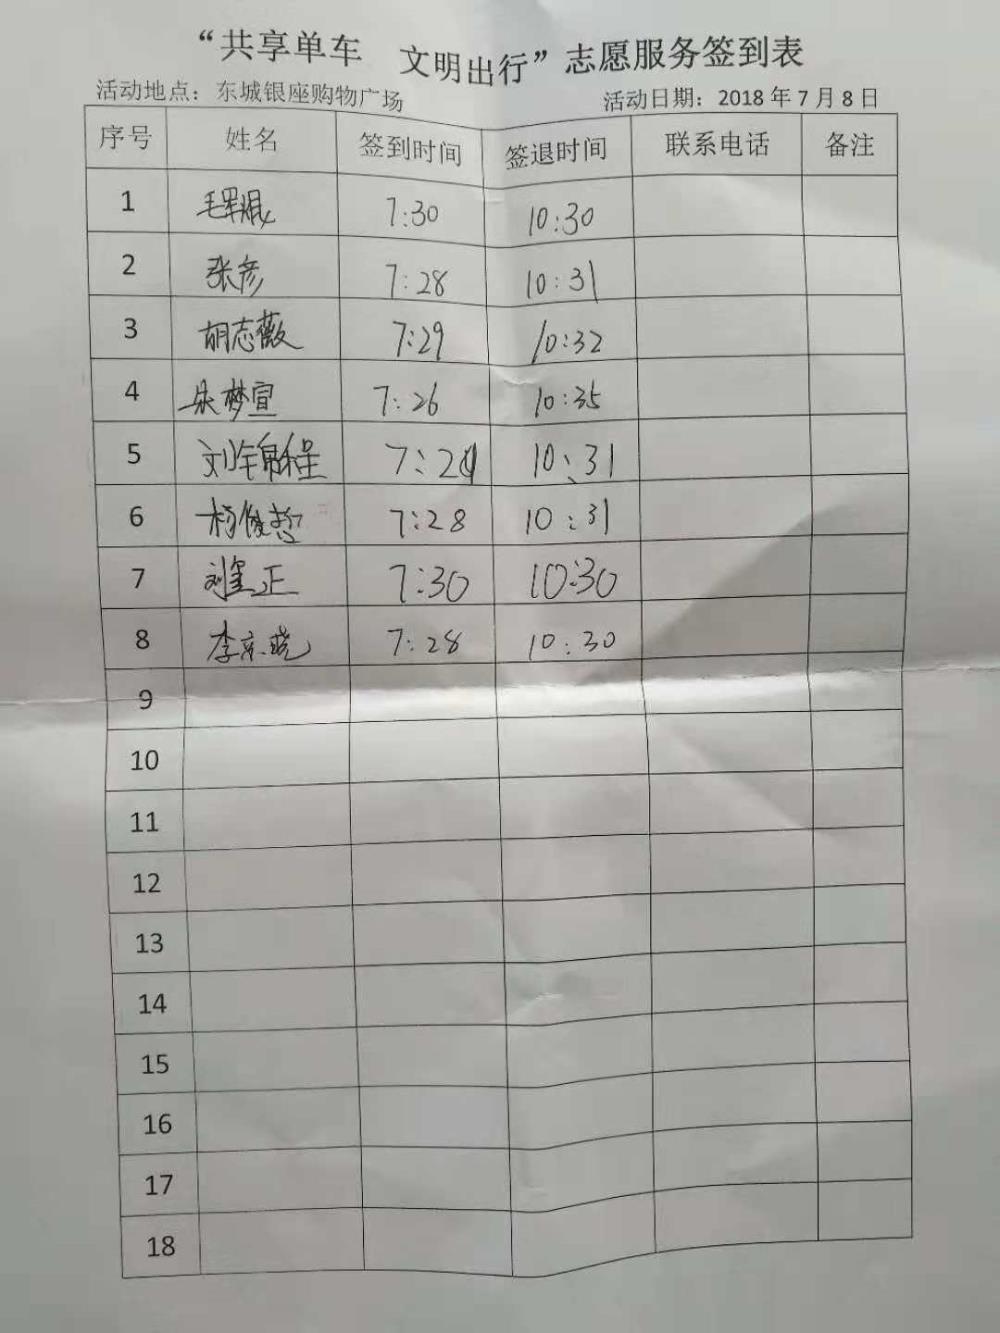 “共享单车 文明出行”志愿服务签到表
活动地点：东城银座购物广场 活动日期：2018年7月8日
序号 姓名 签到时间 签退时间 联系电话 备注
1 7:30 10:30
2 张彦 7:28 10:31
3 胡志薇 7:29 10:32
4 朱梦宣 7:26 10:35
5 刘锦程 10:31
6 杨俊哲 7:28 10:31
7 正 7:30 10:30
8 李京晓 7:28 10:30
9
10
11
12
13
14
15
16
17
18